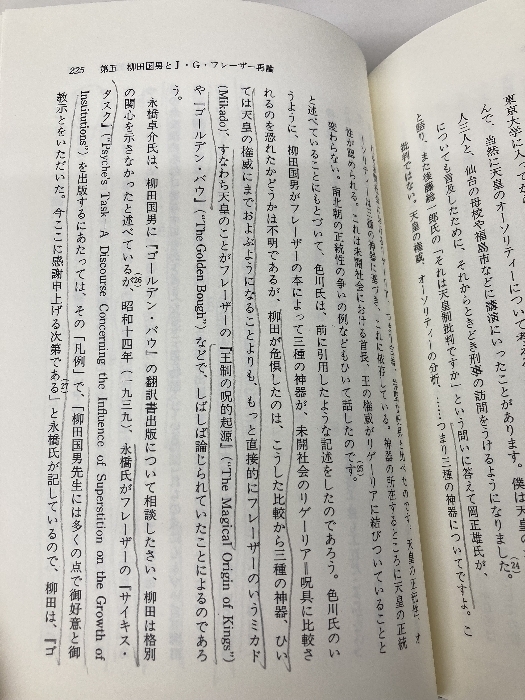 東京大学に入ってか
んで、当然に天皇のオーソリティーについ
人三人と、仙台の母校や福島市などに講演にいったことがあります。僕は天皇の
についても言及したために、それからときどき刑事の訪問をうけるようになりました。(24)
と語り、また後藤総一郎氏の「それは天皇制批判ですか」という問いに答えて岡正雄氏が、
批判ではない。天皇の権威、オーソリティーの分析、……つまり三種の神器についてですよ。こ
ソリティーは三種の神器に基づき、これに依存している。神器の所在するところに天皇の正統
性が認められる。これは未開社会における首長、王の権威がリーゲーリアに結びついていることと
変わらない。南北朝の正統性の争いの例などもひいて話したのです。(25)
と述べていることにもとづいて、色川氏は、前に引用したような記述をしたのであろう。色川氏のい
うように、柳田国男がフレーザーの本によって三種の神器が、未開社会のリゲーリア＝呪具に比較さ
れるのを恐れたかどうかは不明であるが、柳田が危惧したのは、こうした比較から三種の神器、ひい
ては天皇の権威にまでおよぶようになることよりも、もっと直接的にフレーザーのいうミカド
(Mikado)、すなわち天皇のことがフレーザーの『王制の呪的起源』("The Magical Origin of Kings")
や『ゴールデン・バウ』("The Golden Bough")などで、しばしば論じられていたことによるのであろ
う。
永橋卓介氏は、柳田国男に『ゴールデン・バウ』の翻訳書出版について相談したさい、柳田は格別
の関心を示さなかったと述べているが(26)、昭和十四年（一九三九）、永橋氏がフレーザーの『サイキス・
タスク』("Psyche's Task: A Discourse Concerning the Influence of Superstition on the Growth of
Insitutions")を出版するにあたっては、その「凡例」で、「柳田国男先生には多くの点で御好意と御
教示とをいただいた。今ここに感謝申上げる次第である」(27)と永橋氏が記しているので、柳田は、『ゴ
225 第五 柳田国男とJ・G・フレーザー再論